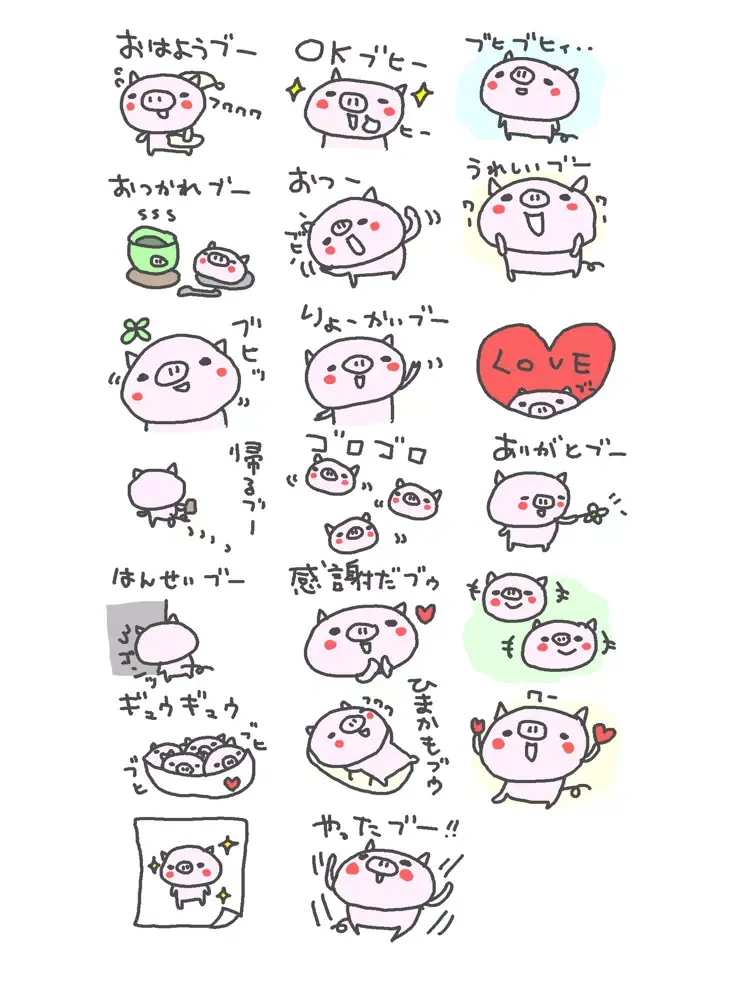 おはようブー
フワワワ
OKブヒー
ヒー
ブヒブヒィ..
おつかれブー
sss
おつー
ブヒ
うれしいブー
ワー
ワー
ブヒッ
りょーかいブー
LOVE
ブー
帰るブー
ゴロゴロ
ありがとブー
はんせいブー
感謝だブゥ
ギュウギュウ
ブヒ
ブヒ
ひまかもブゥ
フワワ
ワー
やったブー!!